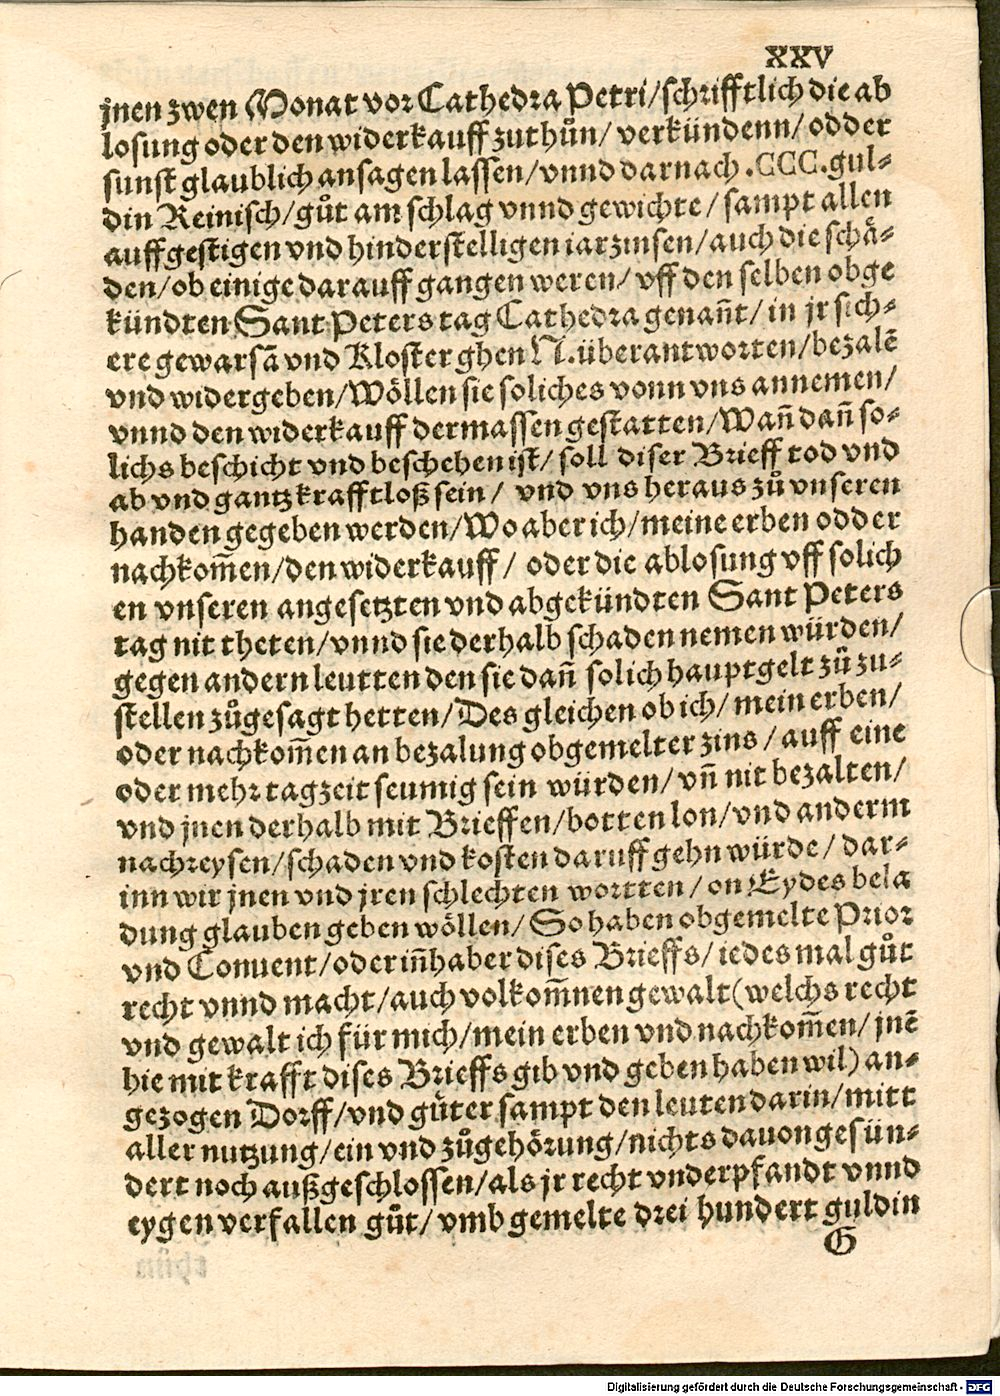 XXV
jnen zwen Monat vor Cathedra Petri/schrifftlich die ab
losung oder den widerkauff zuthůn/ verkündenn/ odder
sunst glaublich ansagen lassen/vnnd darnach .CCC.gul-
din Reinisch/gůt am schlag vnnd gewichte/ sampt allen
auffgestigen vnd hinderstelligen iarzinsen/auch die schä-
den/ob einige darauff gangen weren/ vff den selben obge
kündten Sant Peters tag Cathedra genañt/ in jr sich-
ere gewarsā vnd Kloster ghen N.überantworten/bezalē
vnd widergeben/Wöllen sie soliches vonn vns annemen/
vnnd den widerkauff dermassen gestatten/Wañ dañ so-
lichs beschicht vnd beschehen ist/ soll diser Brieff tod vnd
ab vnd gantz krafftloß sein/ vnd vns heraus zů vnseren
handen gegeben werden/Wo aber ich/meine erben odder
nachkom̄en/den widerkauff/ oder die ablosung vff solich
en vnseren angesetzten vnd abgekündten Sant Peters
tag nit theten/vnnd sie derhalb schaden nemen würden/
gegen andern leutten den sie dañ solich hauptgelt zů zu-
stellen zůgesagt hetten/Des gleichen ob ich/ mein erben/
oder nachkom̄en an bezalung obgemelter zins/ auff eine
oder mehr tagzeit seumig sein würden/ vñ nit bezalten/
vnd jnen derhalb mit Brieffen/botten lon/vnd anderm
nachreysen/schaden vnd kosten daruff gehn würde/ dar-
inn wir jnen vnd jren schlechten wortten/ on Eydes bela
dung glauben geben wöllen/ So haben obgemelte Prior
vnd Conuent/oder iñhaber dises Brieffs/ iedes mal gůt
recht vnnd macht/auch volkom̄nen gewalt(welchs recht
vnd gewalt ich für mich/mein erben vnd nachkom̄en/ jnē
hie mit krafft dises Brieffs gib vnd geben haben wil) an-
gezogen Dorff/vnd güter sampt den leuten darin/mitt
aller nutzung/ein vnd zůgehörung/nichts dauon gesün-
dert noch außgeschlossen/als jr recht vnderpfandt vnnd
eygen verfallen gůt/ vmb gemelte drei hundert guldin
G
Digitalisierung gefördert durch die Deutsche Forschungsgemeinschaft - DFG